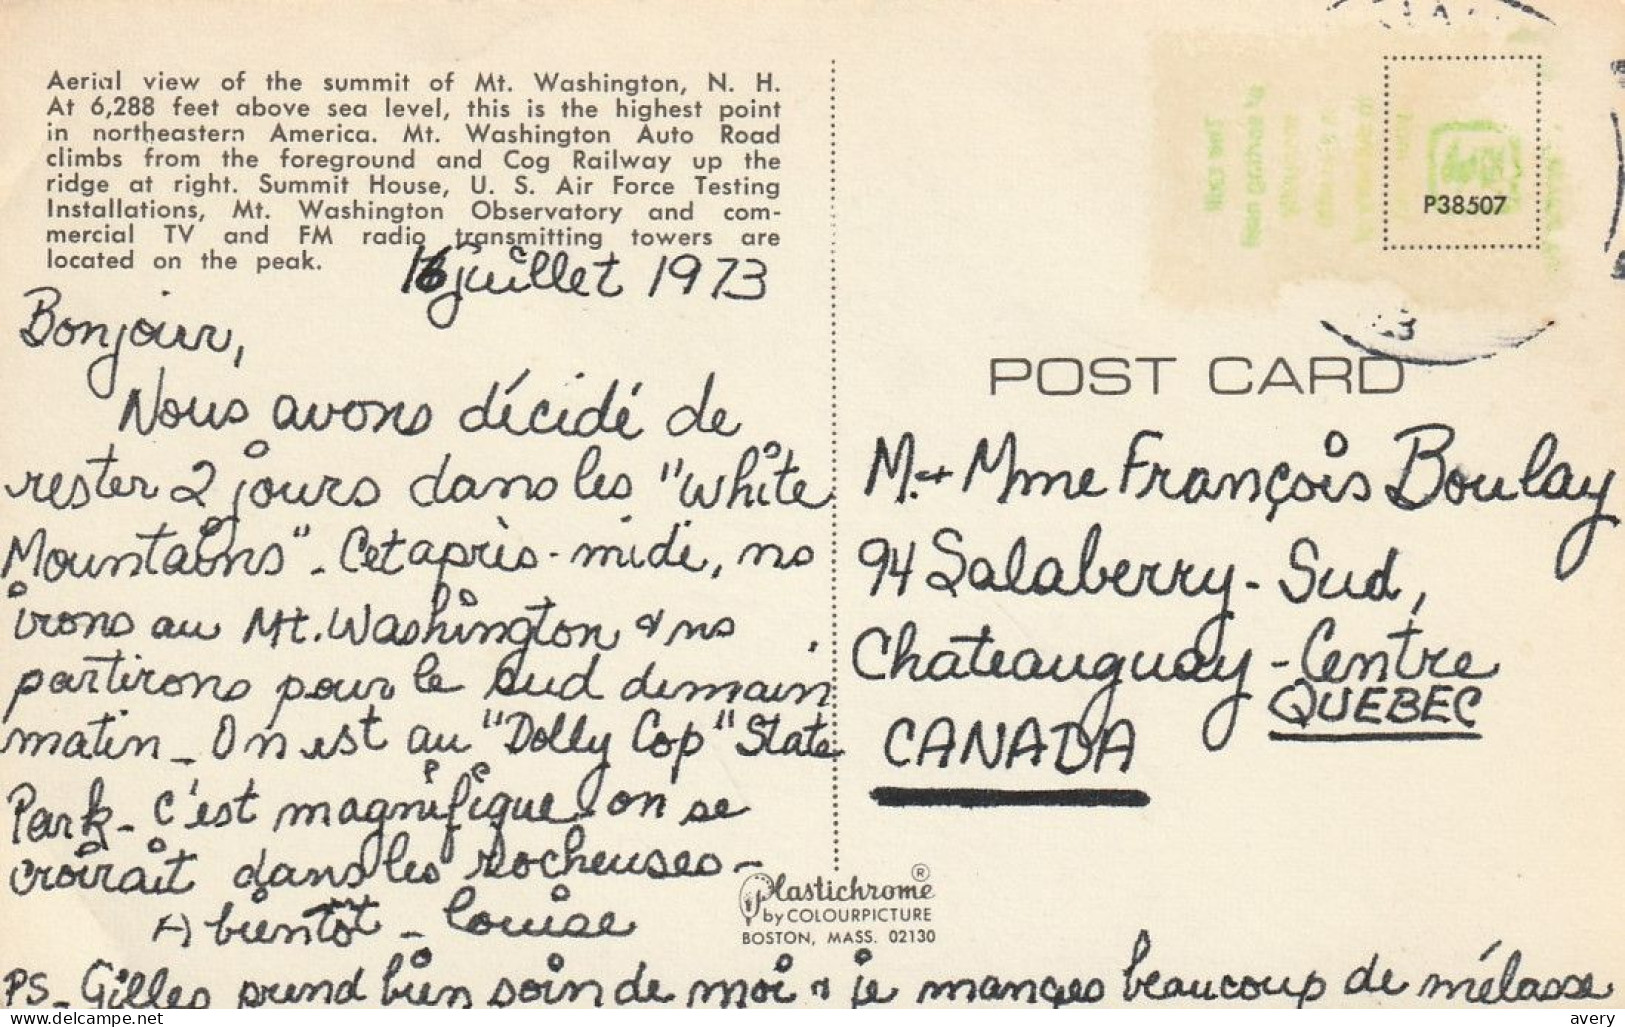 Aerial view of the summit of Mt. Washington, N. H.
At 6,288 feet above sea level, this is the highest point
in northeastern America. Mt. Washington Auto Road
climbs from the foreground and Cog Railway up the
ridge at right. Summit House, U. S. Air Force Testing
Installations, Mt. Washington Observatory and com-
mercial TV and FM radio transmitting towers are
located on the peak.
16 juillet 1973
Bonjour,
Nous avons décidé de
rester 2 jours dans les "White
Mountains" - Cet après-midi, ns
irons au Mt. Washington & ns
partirons pour le sud demain
matin - On est au "Dolly Cop" State
Park - c'est magnifique - on se
croirait dans les rocheuses -
A bientôt - Louise
PS - Gilles prend bien soin de moi & je manges beaucoup de mélasse
P38507
POST CARD
M. + Mme François Boulay
94 Salaberry - Sud,
Chateauguay - Centre
QUEBEC
CANADA
Plastichrome®
by COLOURPICTURE
BOSTON, MASS. 02130
www.delcampe.net
avery